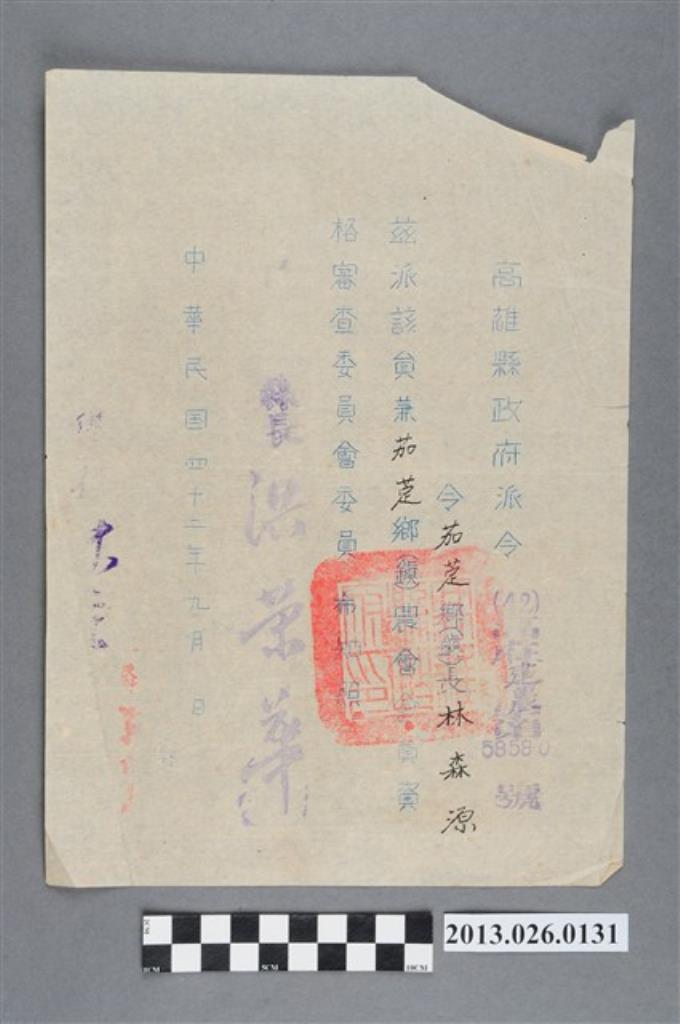 高雄縣政府派令
(42)
建農
58580
號
令茄萣鄉(鎮)長林森源
茲派該員兼茄萣鄉(鎮)農會會員資
格審查委員會委員 布知照
縣長 洪榮華
中華民国四十二年九月 日
2013.026.0131
0CM 5CM 10CM